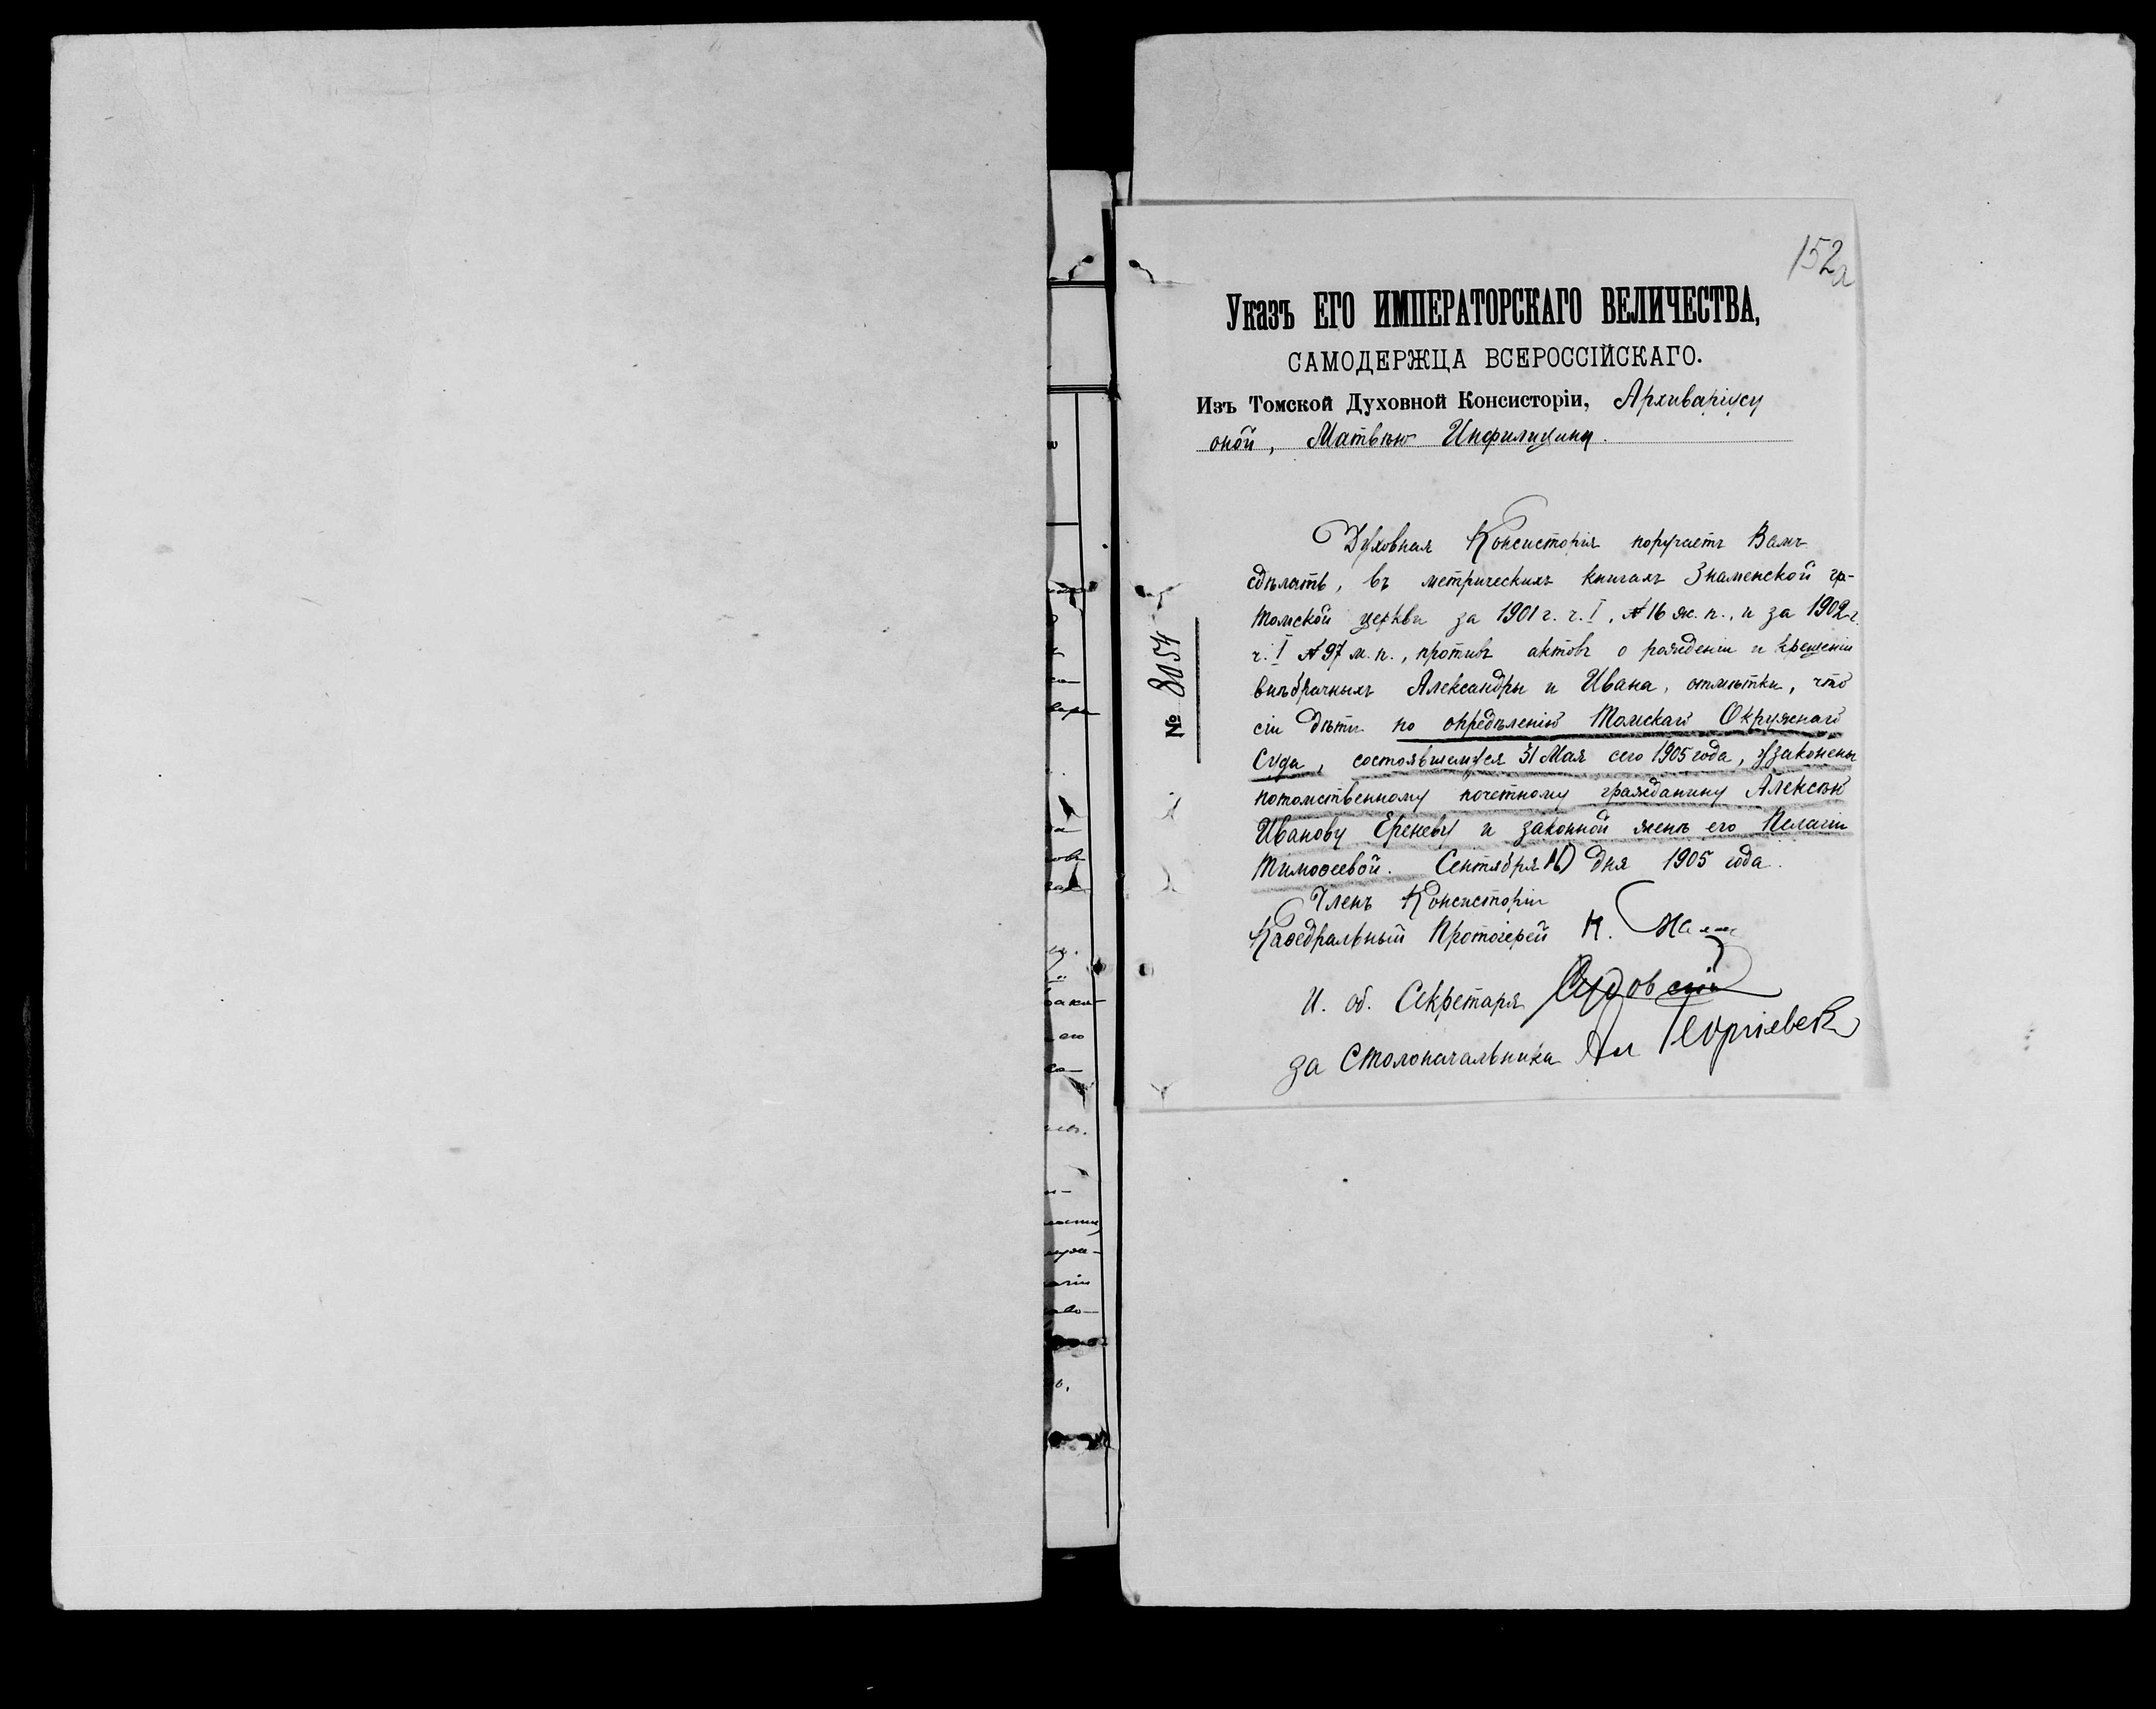 152а
Указъ ЕГО ИМПЕРАТОРСКАГО ВЕЛИЧЕСТВА,
САМОДЕРЖЦА ВСЕРОССІЙСКАГО.
Изъ Томской Духовной Консисторіи, Архиваріусу
оной, Матвѣю
№ 8054
Духовная Консисторія поручаетъ Вамъ
сдѣлать, въ метрическихъ книгахъ Знаменской гр-
Томской церкви за 1901 г. ч. I, № 16 ж. п., и за 1902 г.
ч. I № 97 м. п., противъ актовъ о рожденіи и крещеніи
внѣбрачныхъ Александры и Ивана, отмѣтки, что
сіи дѣти по опредѣленію Томскаго Окружнаго
Суда, состоявшемуся 31 Мая сего 1905 года, узаконены
потомственному почетному гражданину Алексѣю
Иванову Ереневу и законной женѣ его Пелагіи
Тимоѳеевой. Сентября дня 1905 года.
Членъ Консисторіи
Каѳедральный Протоіерей Н.
И. об. Секретаря
за Столоначальника Ал Георгіевск